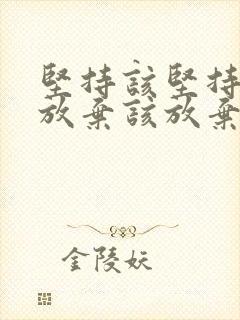 堅持該堅持
放棄該放棄
金陵妖